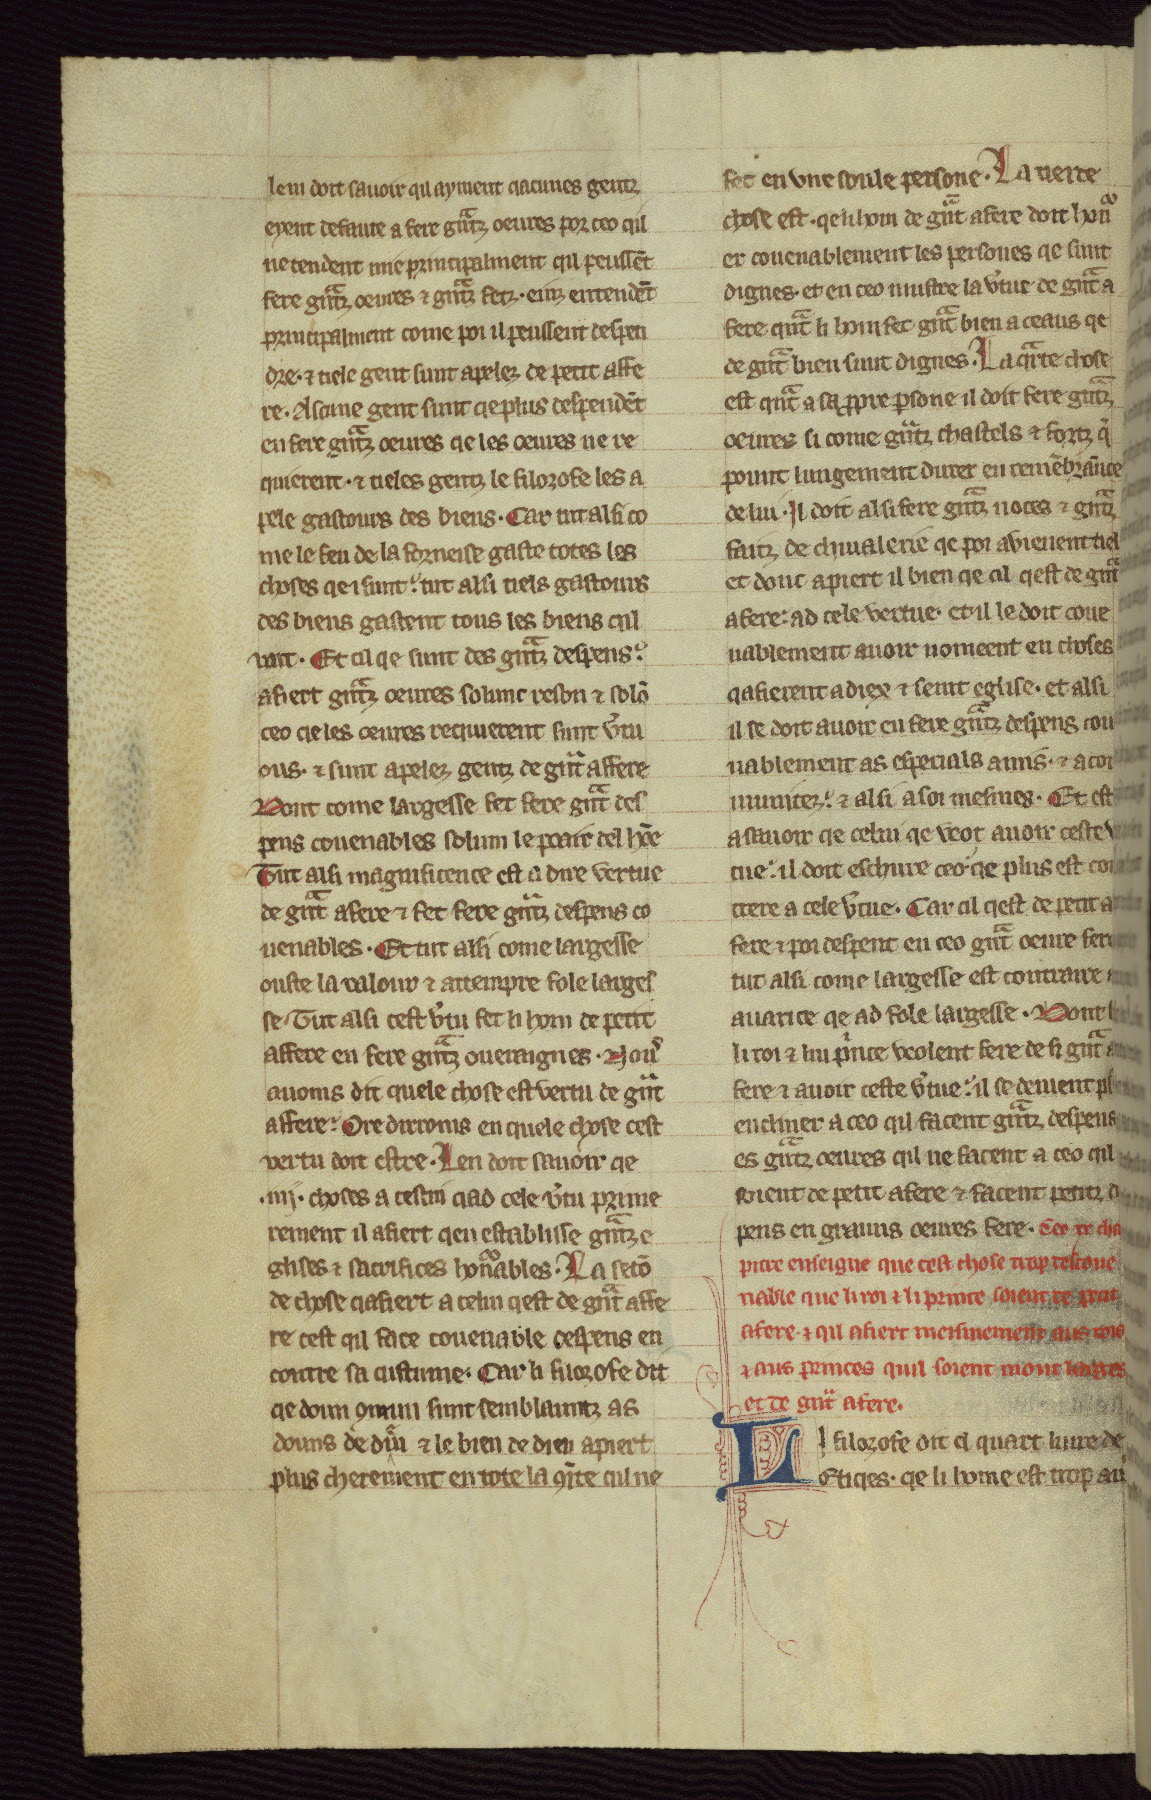 lem doit sauoir qil ayment qacunes gentz
eyent defaute a fere gñtz oeures por ceo qil
ne tendent mie principalment qil peussēt
fere gñtz oeures ⁊ gñtz fetz. einz entendēt
principalment come poi il peussent despen
dre. ⁊ tiele gent sunt apelez de petit affe
re. Ascune gent sunt qe plus despendēt
en fere gñtz oeures qe les oeures ne re
quierent. ⁊ tieles gentz le filozofe les a
pele gastours des biens. Car tut alsi co
me le feu de la forneise gaste totes les
choses qe i sunt: tut alsi tiels gastours
des biens gastent tous les biens qil
unt. Et cil qe sunt des gñtz despens:
afiert gñtz oeures solunc reson ⁊ solō
ceo qe les oeures requierent sunt v̓tu
ous. ⁊ sunt apelez gentz de gñt affere
Dont come largesse fet fere gñt des
pens couenables solum le poair del hōe
Tut alsi magnificence est a dire vertue
de gñt afere ⁊ fet fere gñtz despens co
uenables. Et tut alsi come largesse
ouste la valour ⁊ attempre fole larges
se Tut alsi cest v̓tu fet li hom de petit
affere en fere gñtz oueraignes. Nou⁹
auoms dit quele chose est vertu de gñt
affere: Ore dirroms en quele chose cest
vertu doit estre. Len doit sauoir qe
.iiij. choses a cestui qad cele v̓tu prime
rement il afiert qen establisse gñtz e
glises ⁊ sacrifices hoñables. La secō
de chose qafiert a celui qest de gñt affe
re cest qil face couenable despens en
contre sa custume. Car li filozofe dit
qe doun ꝯmun sunt semblauntz as
douns de diu ⁊ le bien de dieu apiert
plus cherement en tote la ꝯīte qil ne
fet en vne soule persone. La tierce
chose est. qe li hom de gñt afere doit hoñ
er couenablement les persones qe sunt
dignes. et en ceo mustre la v̓tue de gñt a
fere qñt li hom fet gñt bien a ceaus qe
de gñt bien sunt dignes. La qᵃrte chose
est qñt a sa ꝓpre ꝑsone il doit fere gñtz
oeures si come gñtz chastels ⁊ fortz q̄
point lungement durer en remēbrāuce
de lui. Il doit alsi fere gñtz noces ⁊ gñtz
faitz de chiualerie qe poi avienent tiel
et dont apiert il bien qe cil qest de gñt
afere: ad cele vertue. et il le doit coue
nablement auoir nomeent en choses
qafierent a diex ⁊ seint eglise. et alsi
il se doit auoir en fere gñtz despens cou
nablement as especials amis. ⁊ a co
munitez: ⁊ alsi a soi mesmes. Et est
a sauoir qe celui qe veot auoir ceste
tue: il doit eschure ceo qe plus est co
trere a cele v̓tue. Car cil qest de petit a
fere ⁊ poi despent en ceo gñt oeure fere
tut alsi come largesse est contraire
auarice qe ad fole largesse. Dont
li roi ⁊ lui p̓nce veolent fere de si gñt
fere ⁊ auoir ceste v̓tue: il se deuient
encliner a ceo qil facent gñtz despens
es gñtz oeures qil ne facent a ceo qil
soient de petit afere ⁊ facent petitz
pens en grauns oeures fere. Cee xe cha
pitre enseigne que cest chose trop descoue
nable que li roi ⁊ li prince soient de petit
afere. ⁊ qil afiert meismement aus rois
⁊ aus princes quil soient mout larges
et de gñt afere.
LI filozofe dit el quart liure de
Etiqes. qe li home est trop au